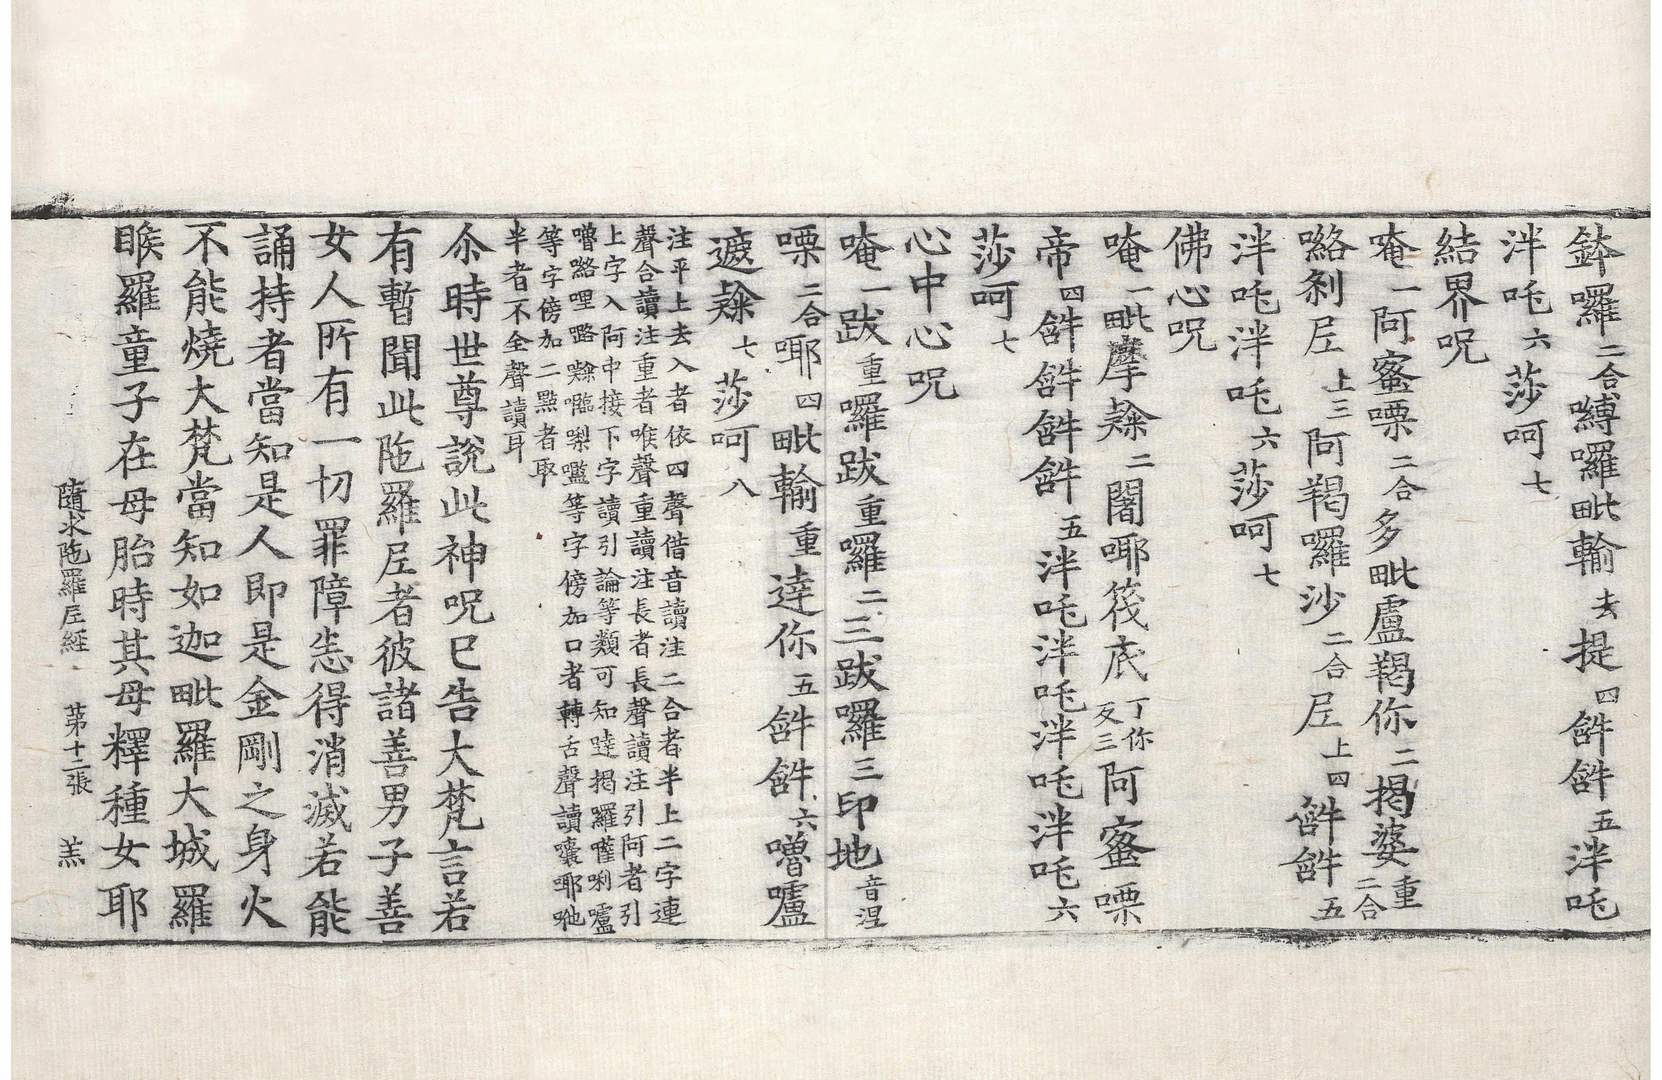 鉢囉二合嚩囉毗輸去提四𤙖𤙖五泮吒
泮吒六莎呵七
結界呪
唵一阿蜜㗚二合多毗盧羯你二揭婆重二合
𡀔剎𡰱上三阿羯囉沙二合𡰱上四𤙖𤙖五
泮吒泮吒六莎呵七
佛心呪
唵一毗摩㒱二闍耶筏底丁你反三阿蜜㗚
帝四𤙖𤙖𤙖𤙖五泮吒泮吒泮吒泮吒六
莎呵七
心中心呪
唵一跋重囉跋重囉二三跋囉三印地音涅
㗚二合耶四毗輸重達你五𤙖𤙖六嚕嚧
遮㒱七莎呵八
注平上去入者依四聲借音讀注二合者半上二字連
聲合讀注重者唯聲重讀注長者長聲讀注引阿者引
上字入阿中接下字讀引論等類可知
等字傍加口者轉舌聲讀
等字傍加二點者取
半者不全聲讀耳
尒時世尊說此神呪已告大梵言若
有暫聞此陁羅𡰱者彼諸善男子善
女人所有一切罪障悉得消滅若能
誦持者當知是人即是金剛之身火
不能燒大梵當知如迦毗羅大城羅
睺羅童子在母胎時其母釋種女耶
隨求陁羅𡰱經 第十二張 羔